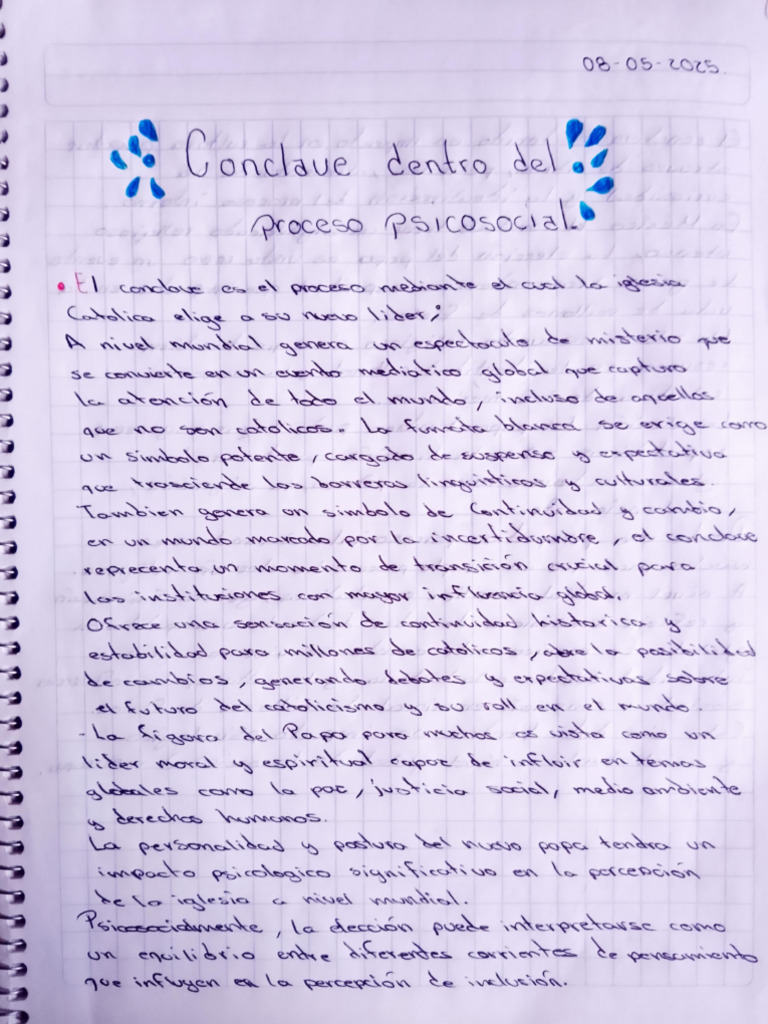 08-05-2025.
Conclave dentro del
proceso psicosocial.
• El conclave es el proceso mediante el cual la iglesia
Catolica elige a su nuevo lider;
A nivel mundial genera un espectaculo de misterio que
se convierte en un evento mediatico global que captura
la atención de todo el mundo, incluso de aquellos
que no son catolicos. La fumata blanca se erige como
un simbolo potente, cargado de suspenso y expectativa
que trasciende las barreras linguisticas y culturales.
Tambien genera un simbolo de Continuidad y cambio,
en un mundo marcado por la incertidumbre, el conclave
representa un momento de transición crucial para
las instituciones con mayor influencia global.
Ofrece una sensación de continuidad historica y
estabilidad para millones de catolicos, abre la posibilidad
de cambios, generando debates y expectativas sobre
el futuro del catolicismo y su roll en el mundo.
- La figura del Papa para muchos es vista como un
lider moral y espiritual capaz de influir en temas
globales como la paz, justicia social, medio ambiente
y derechos humanos.
La personalidad y postura del nuevo papa tendra un
impacto psicologico significativo en la percepción
de la iglesia a nivel mundial.
Psicosocialmente, la elección puede interpretarse como
un equilibrio entre diferentes corrientes de pensamiento
que influyen en la percepción de inclusión.